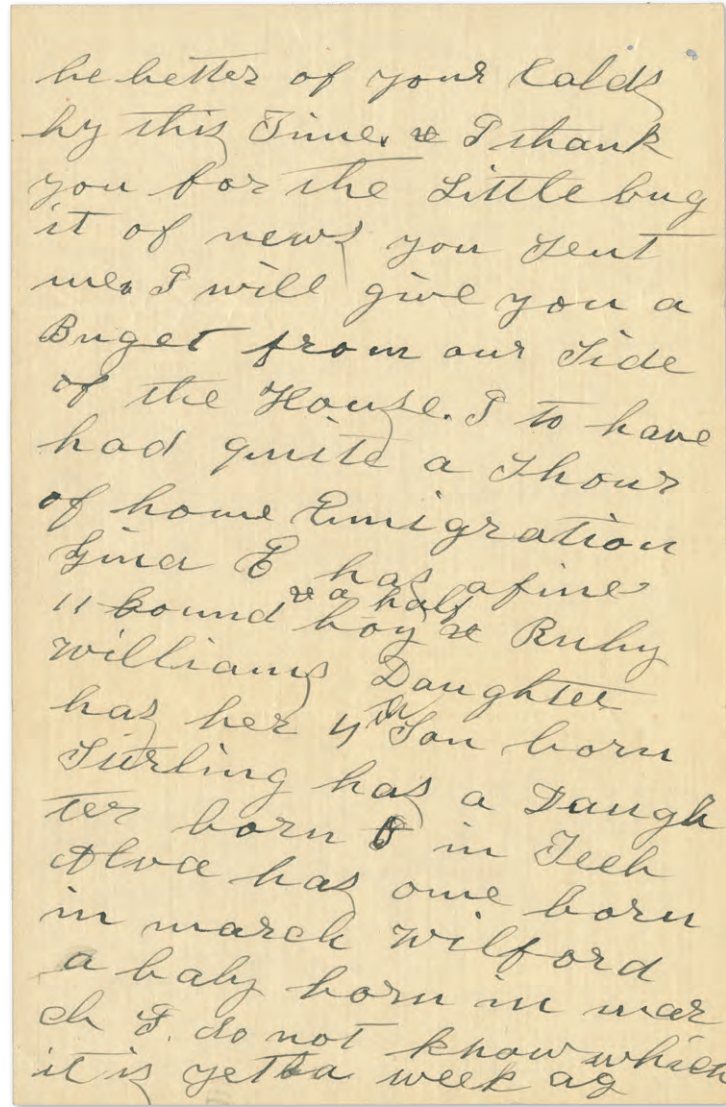 be better of your Colds
by this Time. & I thank
you for the Little bug
it of news you Sent
me. I will give you a
Buget from our Side
of the House. I to have
had quite a Shour
of home Emigration
E has a fine
11 bound & a half boy & Ruby
Williams Daughter
has her 4th Son born
Sturling has a Daugh
ter born in Feeb
Alva has one born
in march Wilford
a baby born in mar
ch I. do not know which
it is yet a week ag